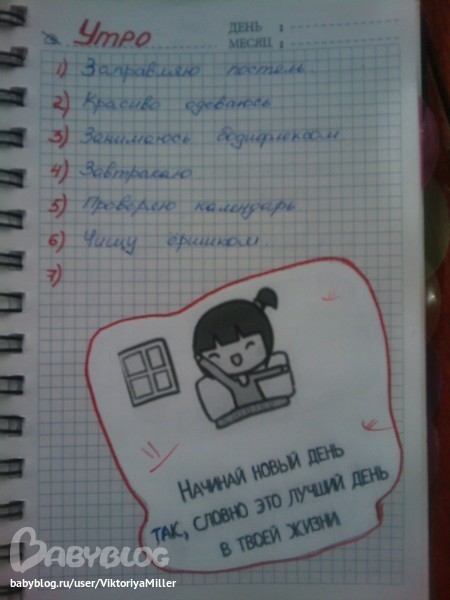 Утро
ДЕНЬ :
МЕСЯЦ :
1) Заправляю постель.
2) Красиво одеваюсь
3) Занимаюсь бодифлексом
4) Завтракаю
5) Проверяю календарь
6) Чищу ёршиком.
7)
НАЧИНАЙ НОВЫЙ ДЕНЬ
ТАК, СЛОВНО ЭТО ЛУЧШИЙ ДЕНЬ
В ТВОЕЙ ЖИЗНИ
BABYBLOG
babyblog.ru/user/ViktoriyaMiller